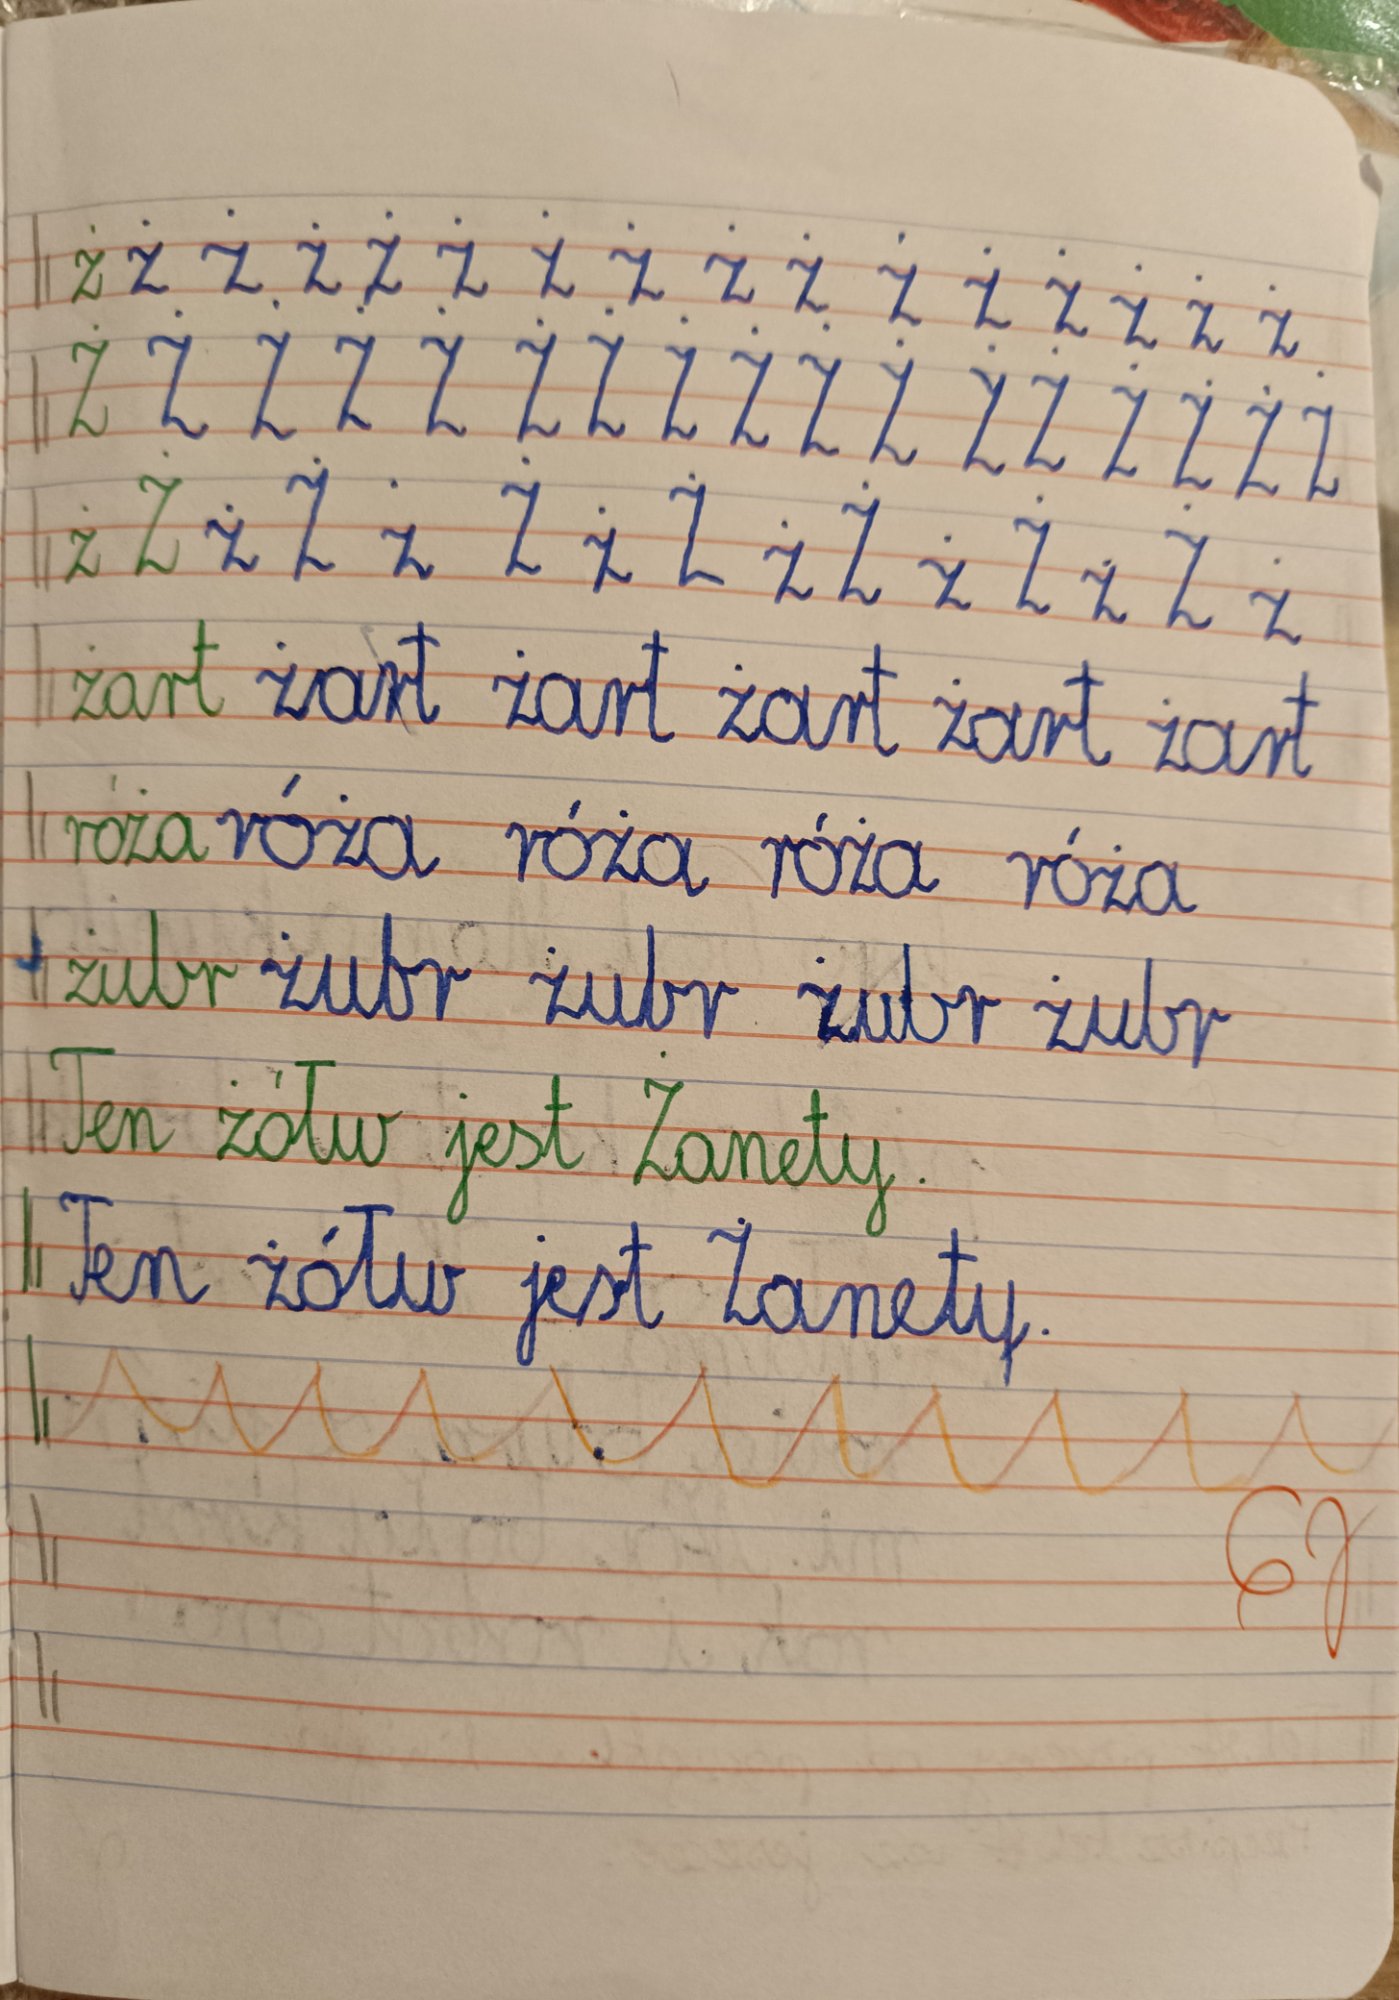 ż ż ż ż ż ż ż ż ż ż ż ż ż ż ż ż
Ż Ż Ż Ż Ż Ż Ż Ż Ż Ż Ż Ż Ż Ż Ż Ż Ż
ż Ż ż Ż ż Ż ż Ż ż Ż ż Ż ż Ż ż
żart żart żart żart żart żart
róża róża róża róża róża
żubr żubr żubr żubr żubr
Ten żółw jest Żanety.
Ten żółw jest Żanety.